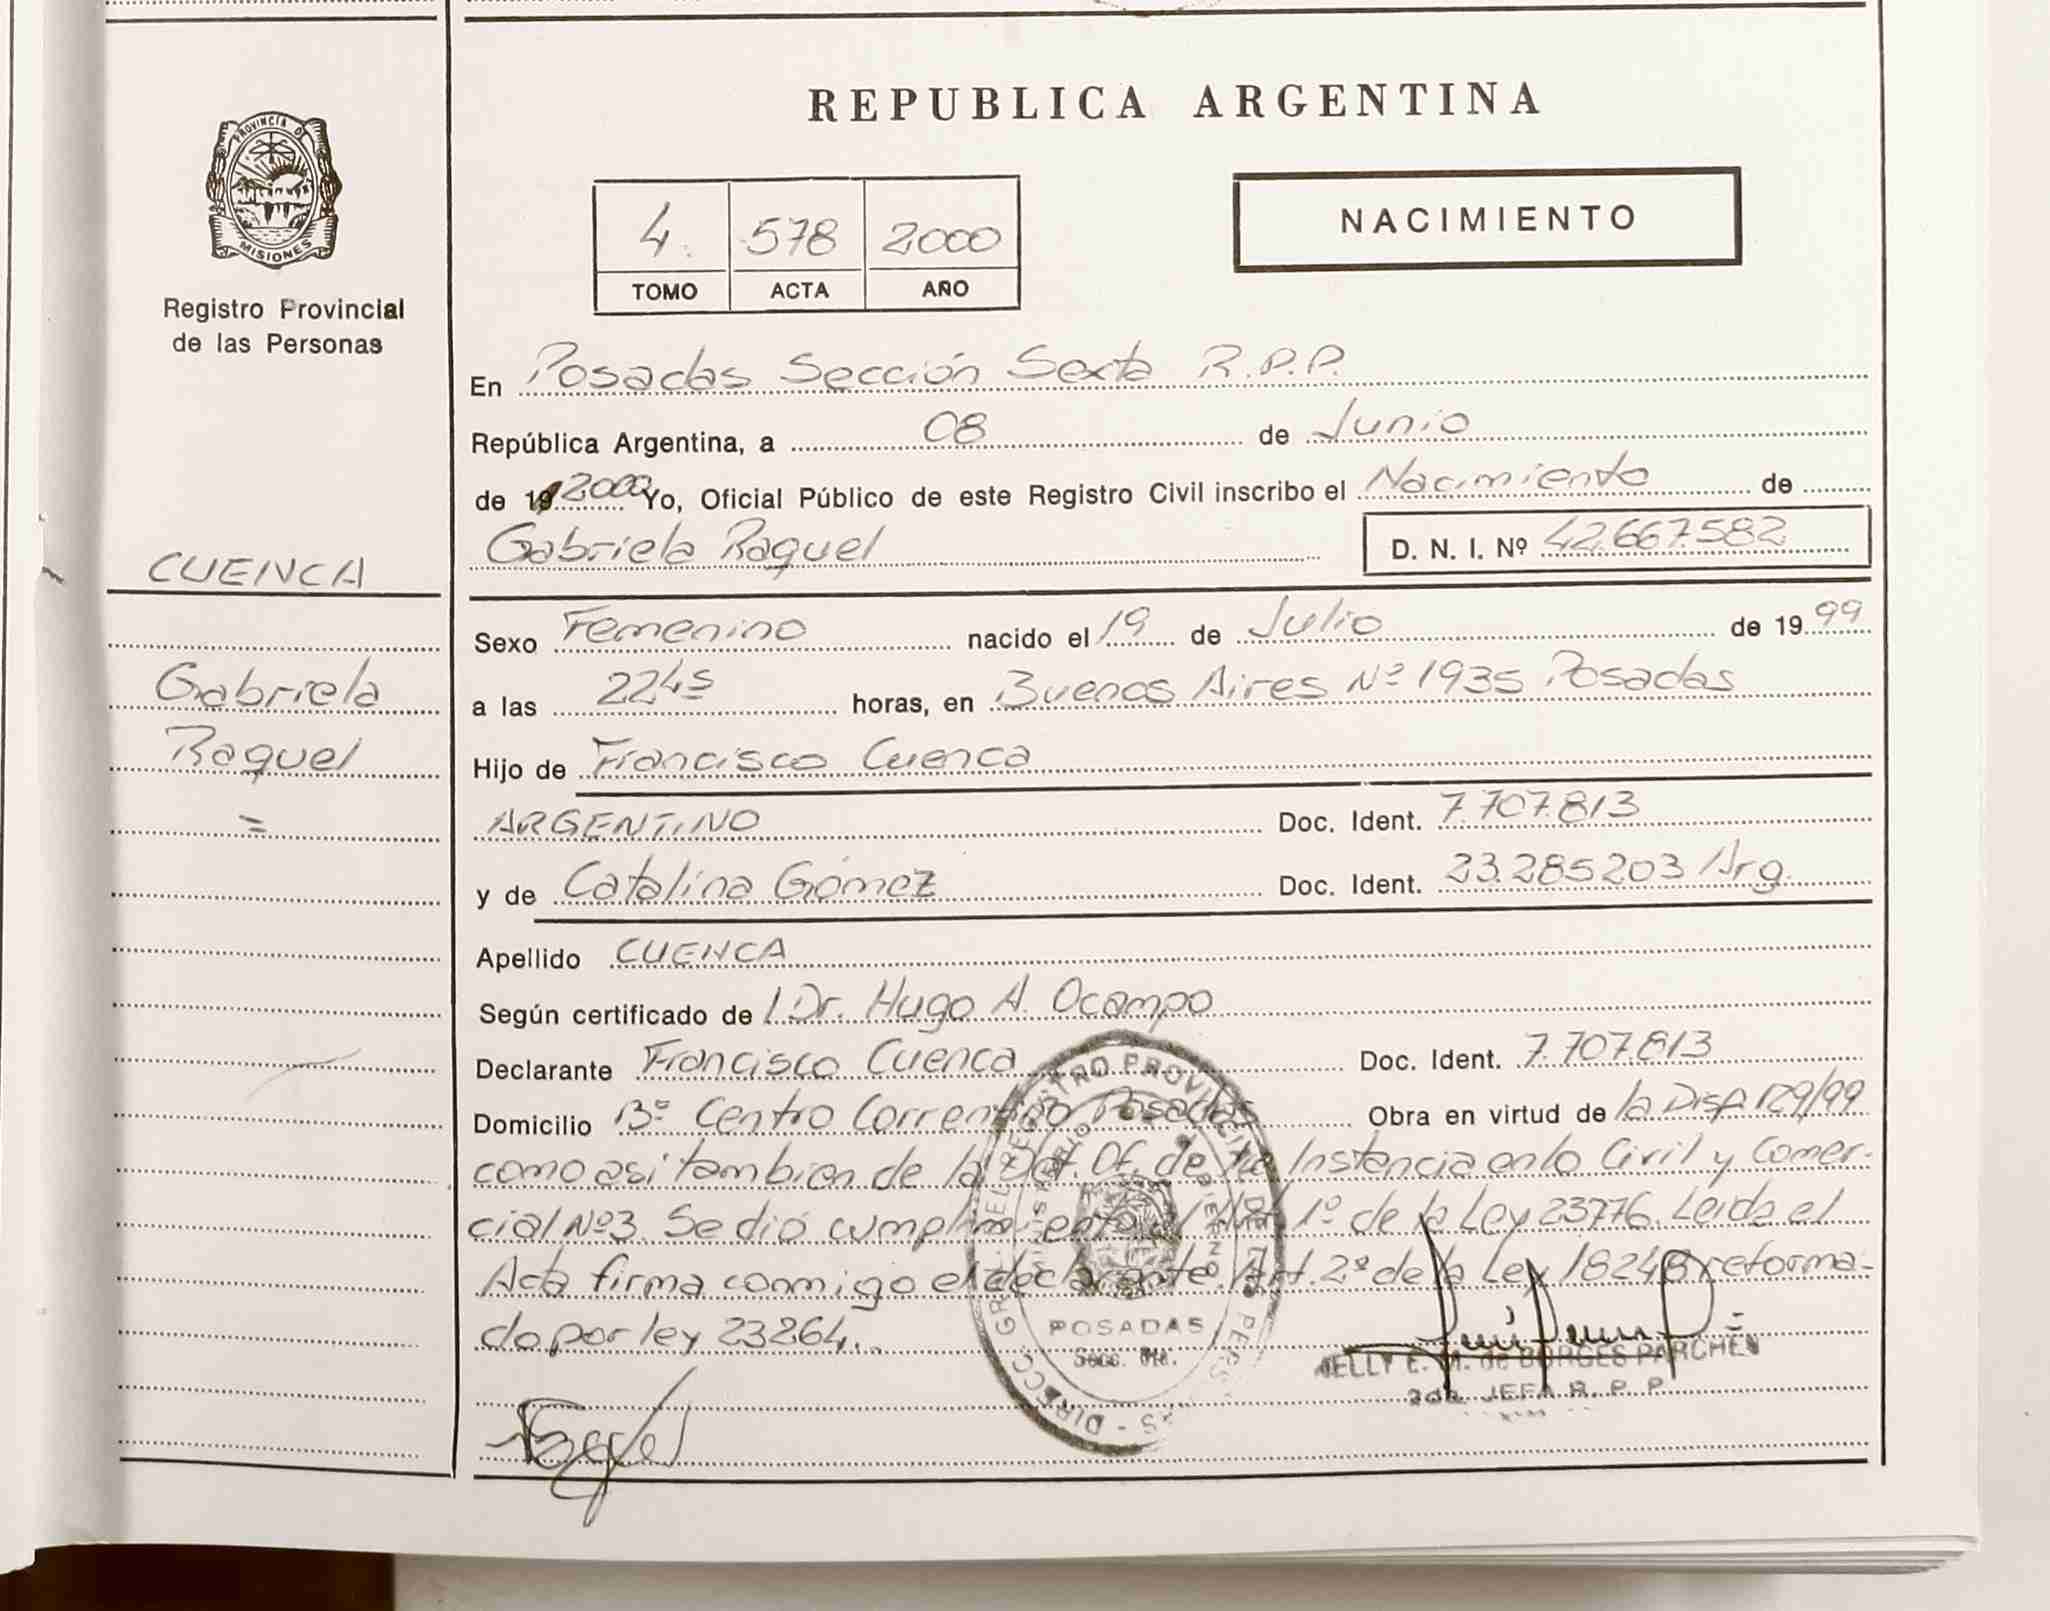 PROVINCIA DE
MISIONES
Registro Provincial
de las Personas
CUENCA
Gabriela
Raquel
=
REPUBLICA ARGENTINA
4. 578 2000
TOMO ACTA AÑO
NACIMIENTO
En Posadas Sección Sexta R.P.P.
República Argentina, a 08 de Junio
de 19 2000 Yo, Oficial Público de este Registro Civil inscribo el Nacimiento de
Gabriela Raquel D. N. I. Nº 42.667.582
Sexo Femenino nacido el 19 de Julio de 1999
a las 2245 horas, en Buenos Aires Nº 1935 Posadas
Hijo de Francisco Cuenca
ARGENTINO Doc. Ident. 7.707.813
y de Catalina Gómez Doc. Ident. 23.285203 Arg.
Apellido CUENCA
Según certificado de l Dr. Hugo A. Ocampo
Declarante Francisco Cuenca Doc. Ident. 7.707.813
Domicilio Bº Centro Correntino Posadas Obra en virtud de la Disp 129/99
como asi tambien de la Def. Of. de Instancia en lo Civil y Comer-
cial Nº3. Se dió cumplimiento al Art. 1º de la Ley 23776. Leida el
Acta firma conmigo el declarante. Art. 2º de la Ley 18248 reforma-
do por ley 23264.
POSADAS
Secc. 6ta.
NELLY E. M. de BORGES PARCHEN
2da. JEFA R. P. P.